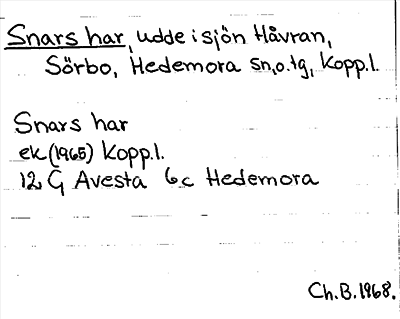 Snars har, udde i sjön Håvran,
Sörbo, Hedemora sn, o. tg, Kopp. l.
Snars har
ek (1965) Kopp. l.
12 G Avesta 6c Hedemora
Ch. B. 1968.